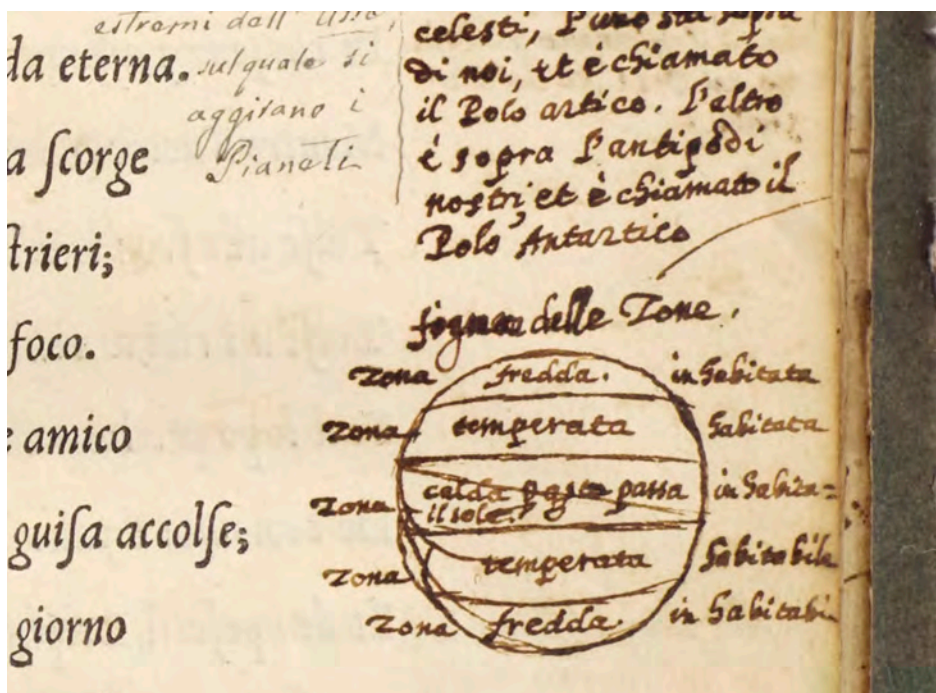 da eterna.
a ſcorge
trieri;
foco.
e amico
guiſa accolſe;
giorno
estremi dall' Asse,
sul quale si
aggirano i
Pianeti
celesti, l'uno sai sopra
di noi, et è chiamato
il Polo artico. l'altro
è sopra l'antipodi
nostri et è chiamato il
Polo Antartico
delle Zone.
Zona fredda. inhabitata
Zona temperata habitata
Zona calda passa inhabita=
il sole.
Zona temperata habitabile
Zona fredda. inhabitabi